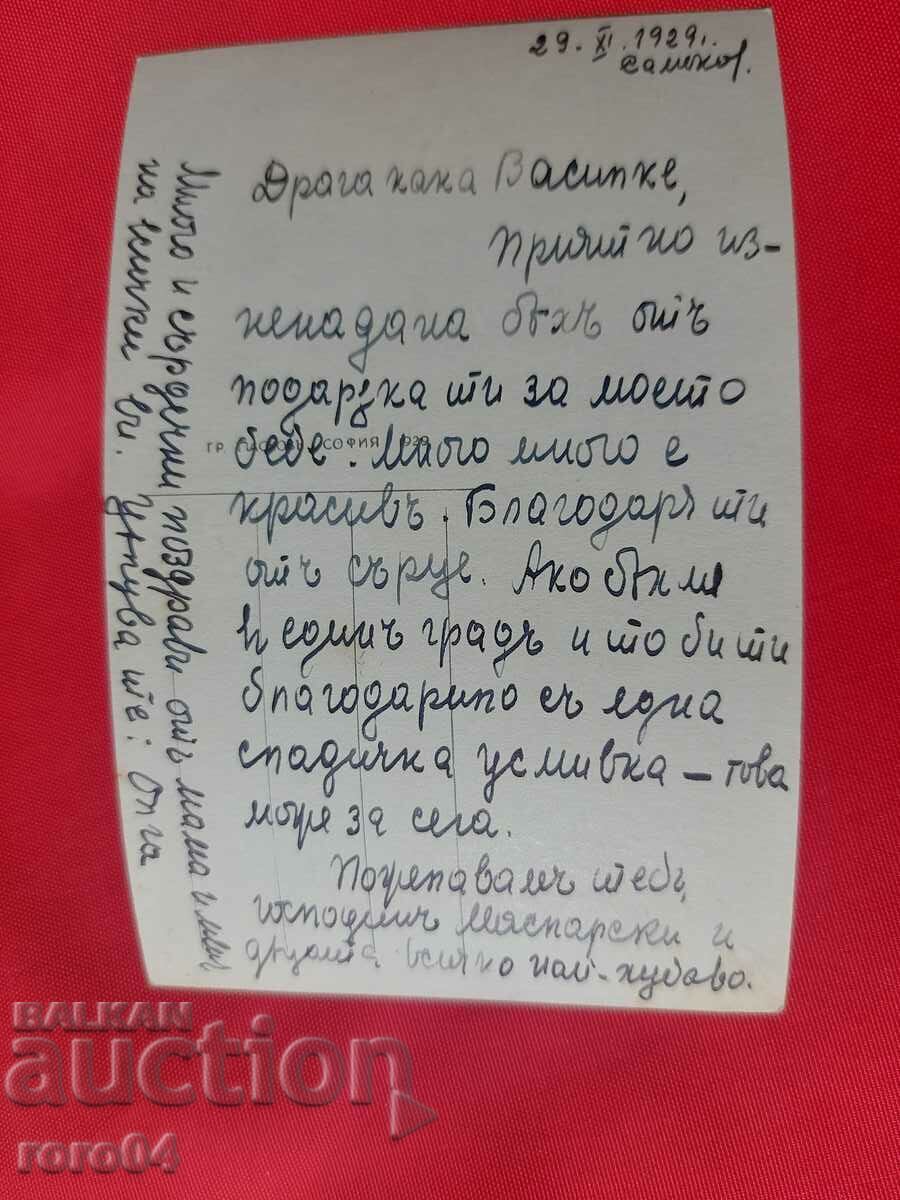 29. XI. 1929.
Самоков.
Драга кака Васипке,
Приятно из-
ненадана бѣхъ отъ
подаръка ти за моето
бебе. Много много е
красивъ. Благодаря ти
отъ сърце. Ако бѣхме
в единъ градъ и то би ти
благодарило съ една
сладичка усмивка – това
може за сега.
Пожелавамъ теб,
господинъ и
децата всичко най-хубаво.
Много и сърдечни поздрави отъ мама и мен
на всички ви. Цѣлува те: Олга
ГР. СОФИЯ 1929
BALKAN
auction
roro04